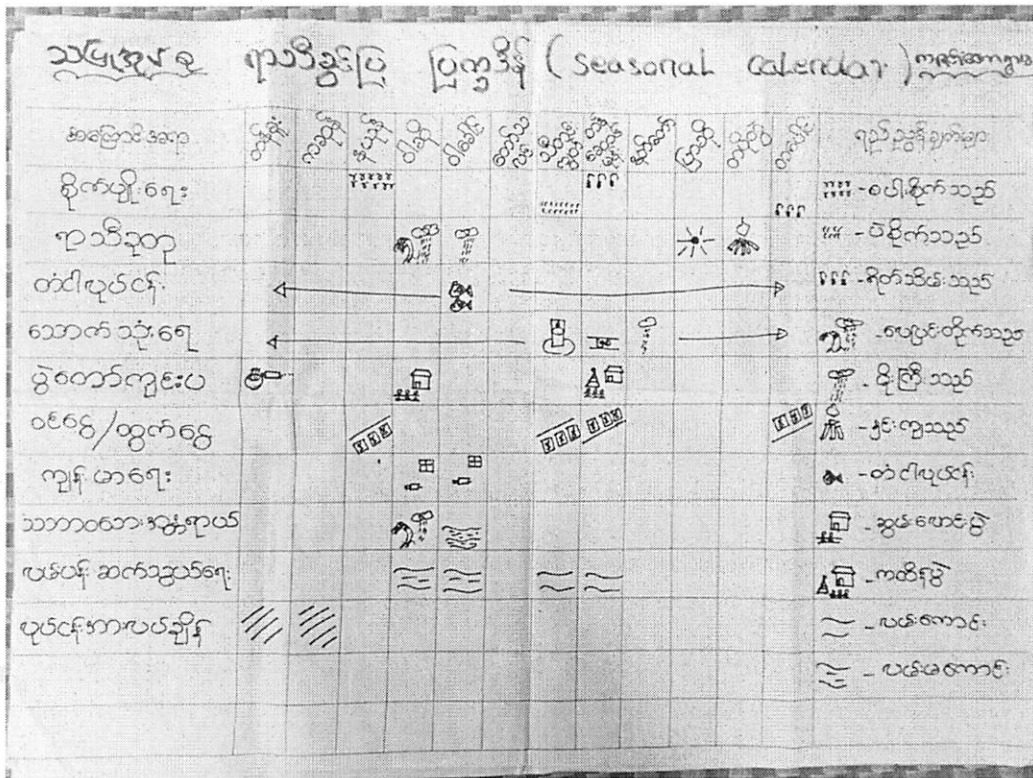 သပြုအုပ်စု ရာသီခွင်ပြ ပြက္ခဒိန် (Seasonal Calendar)
အကြောင်းအရာ တန်ခူး ကဆုန် နယုန် ဝါဆို ဝါခေါင် တော်သလင်း သီတင်းကျွတ် တန်ဆောင်မုန်း နတ်တော် ပြာသို တပို့တွဲ တပေါင်း ရည်ညွှန်းချက်များ
စိုက်ပျိုးရေး - စပါးစိုက်သည်
ရာသီဥတု - ပဲစိုက်သည်
တံငါလုပ်ငန်း - ရိတ်သိမ်းသည်
သောက်သုံးရေ - လေပြင်းတိုက်သည်
ပွဲတော်ကျင်းပ - မိုးကြီးသည်
ဝင်ငွေ/ထွက်ငွေ - နှင်းကျသည်
ကျန်းမာရေး - တံငါလုပ်ငန်း
သဘာဝဘေးအန္တရာယ် - ဆွမ်းလောင်းပွဲ
လမ်းပန်းဆက်သွယ်ရေး - ကထိန်ပွဲ
လုပ်ငန်းအားလပ်ချိန် - လမ်းကောင်း
- လမ်းမကောင်း